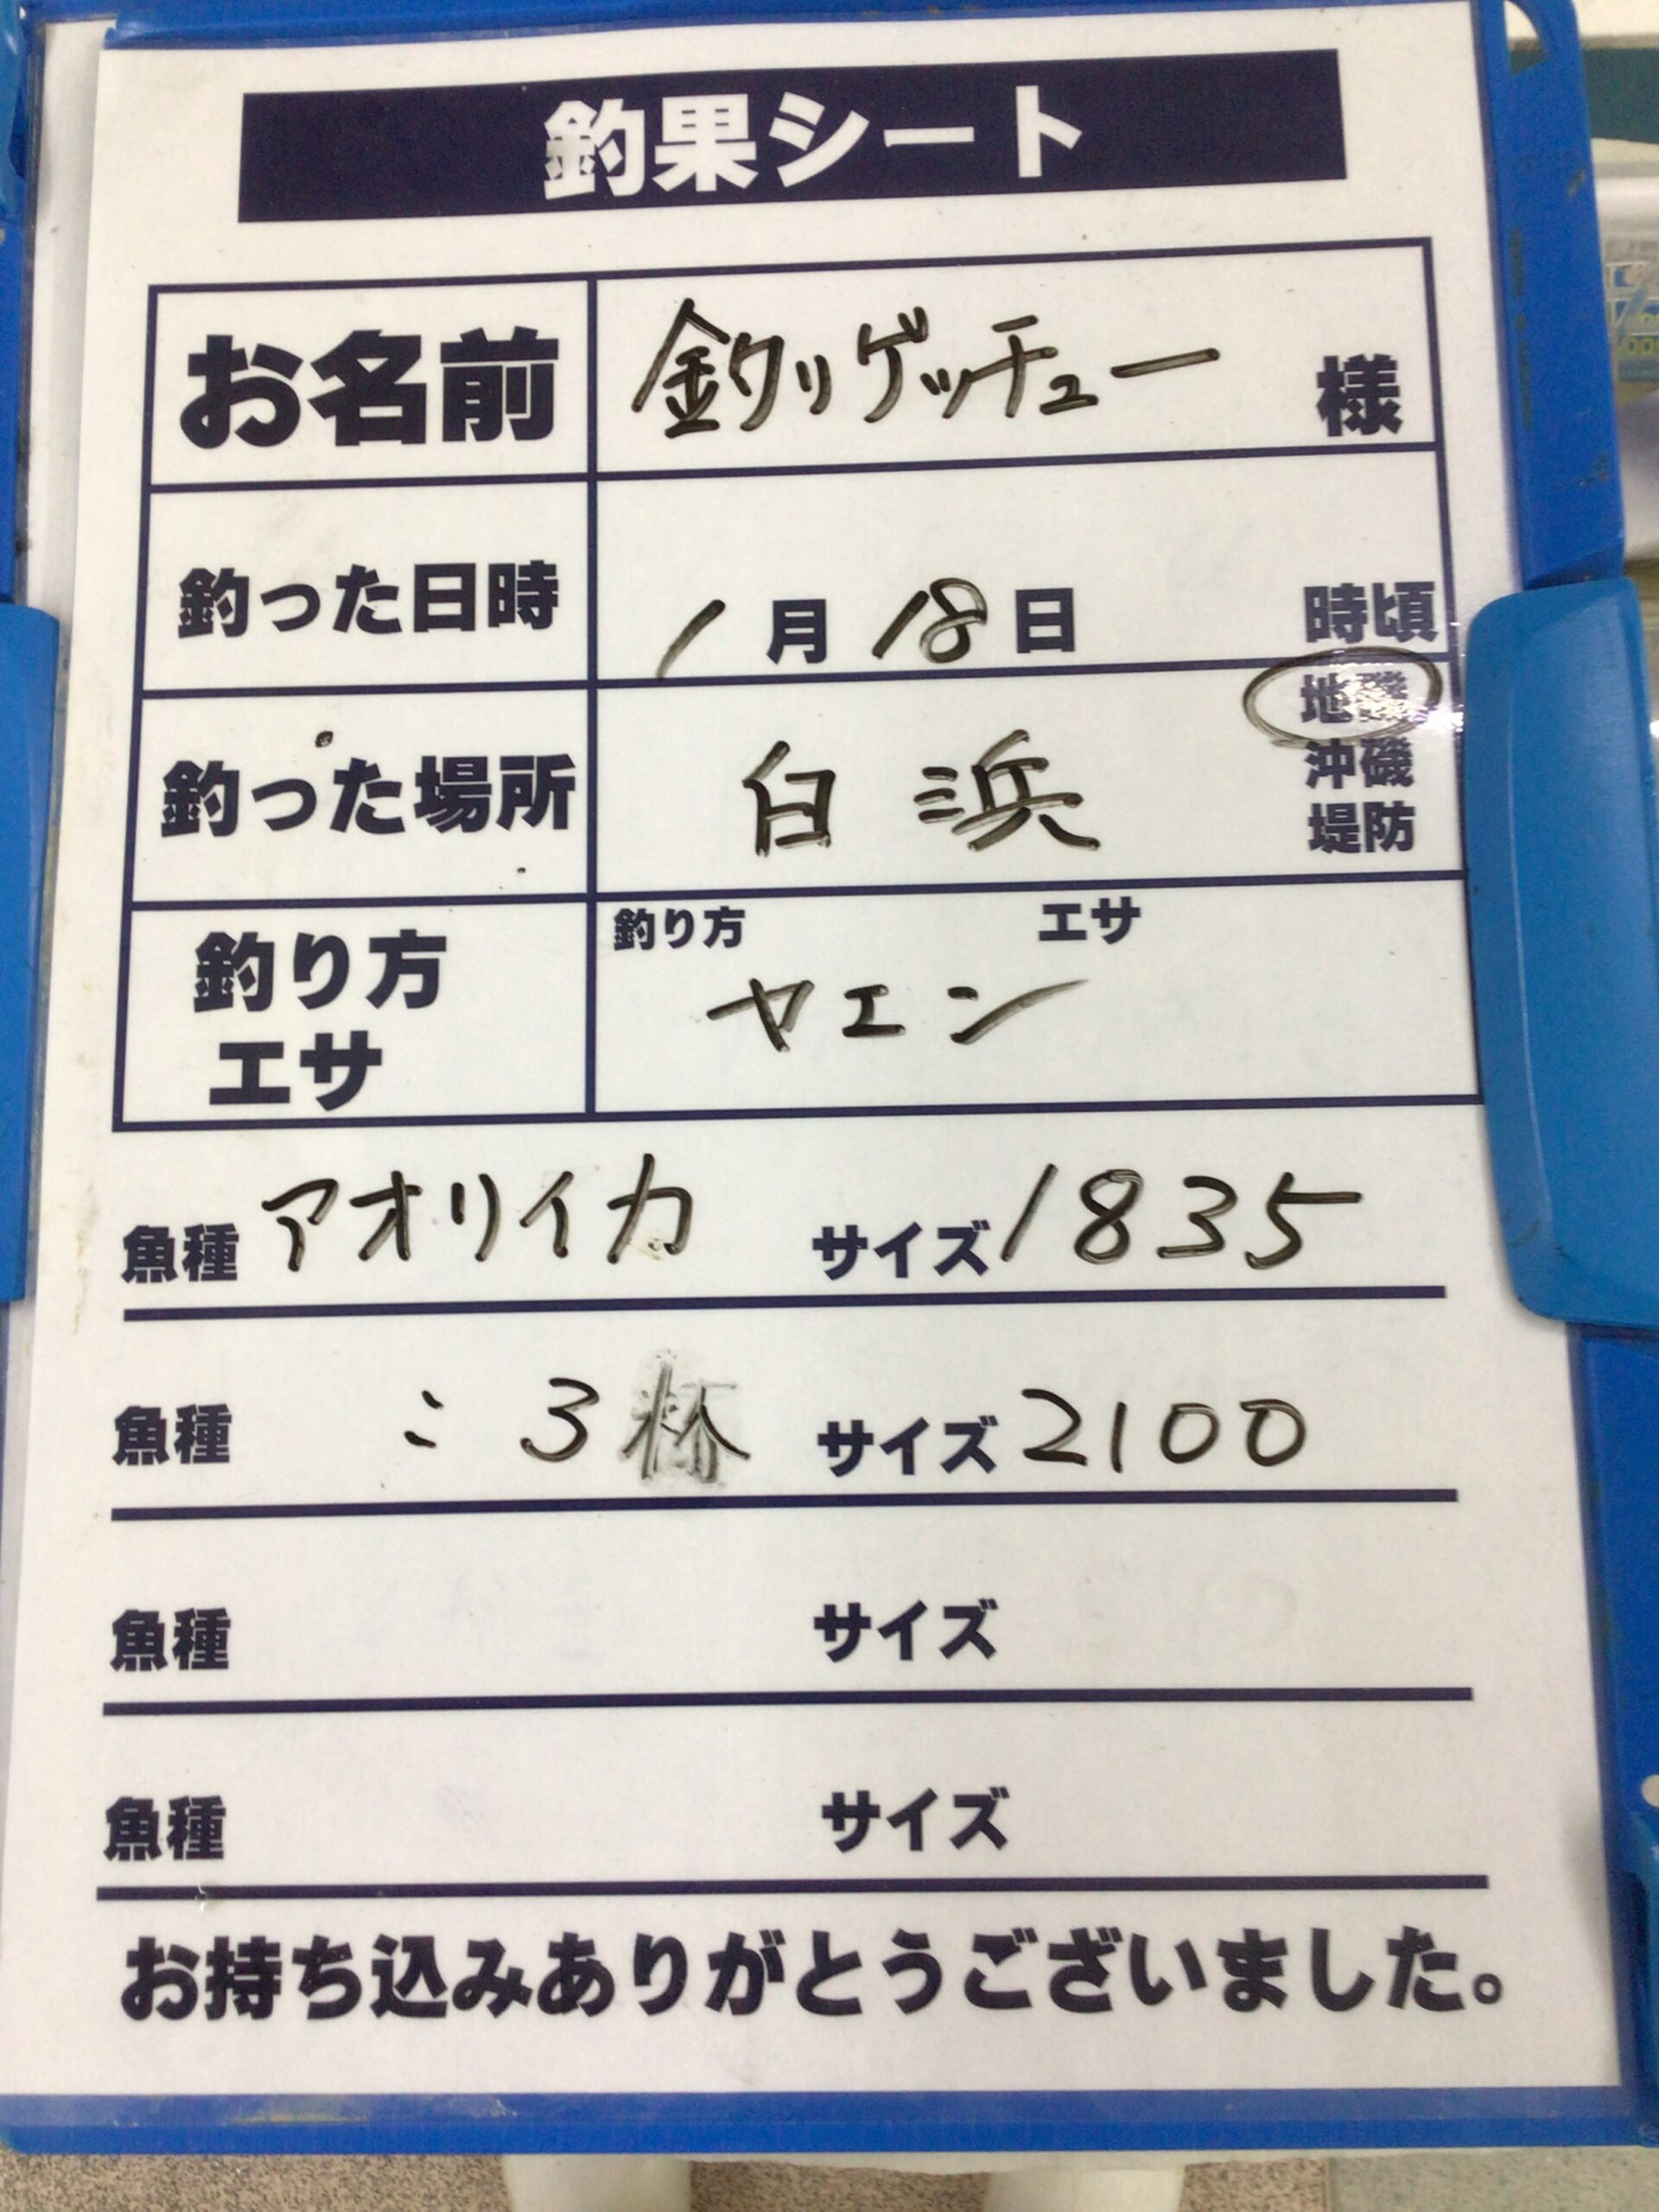 釣果シート
お名前 釣りゲッチュー 様
釣った日時 1月18日 時頃
釣った場所 白浜 地磯
沖磯
堤防
釣り方 エサ
釣り方 ヤエン
エサ
魚種 アオリイカ サイズ 1835
魚種 〃 3杯 サイズ 2100
魚種 サイズ
魚種 サイズ
お持ち込みありがとうございました。